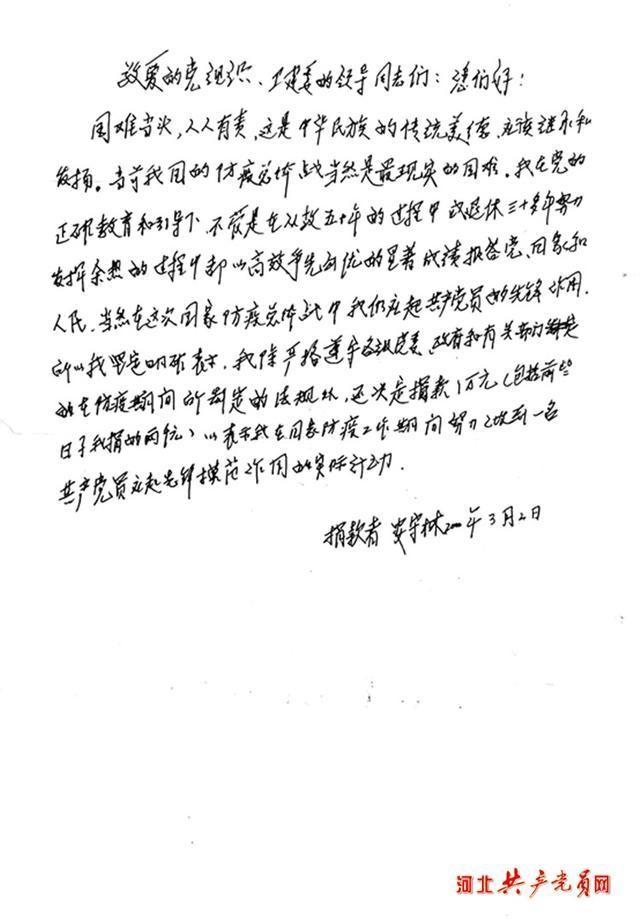 敬爱的党组织、卫健委的领导同志们：您们好！
国难当头，人人有责，这是中华民族的传统美德，应该继承和
发扬。当前我国的防疫总体战当然是最现实的国难。我在党的
正确教育和引导下，不管是在从政五十年的过程中或退休三十多年努力
发挥余热的过程中都以高效争先创优的显著成绩报答党、国家和
人民，当然在这次国家防疫总体战中我仍应起共产党员的先锋作用。
所以我坚定明确表示，我除严格遵守各级党委、政府和有关部门
的在防疫期间所制定的法规外，还决定捐款1万元（包括前些
日子我捐的两佰）以表示我在国家防疫工作期间努力做到一名
共产党员应起先锋模范作用的实际行动。
捐款者 安宇林 年3月2日
河北共产党员网